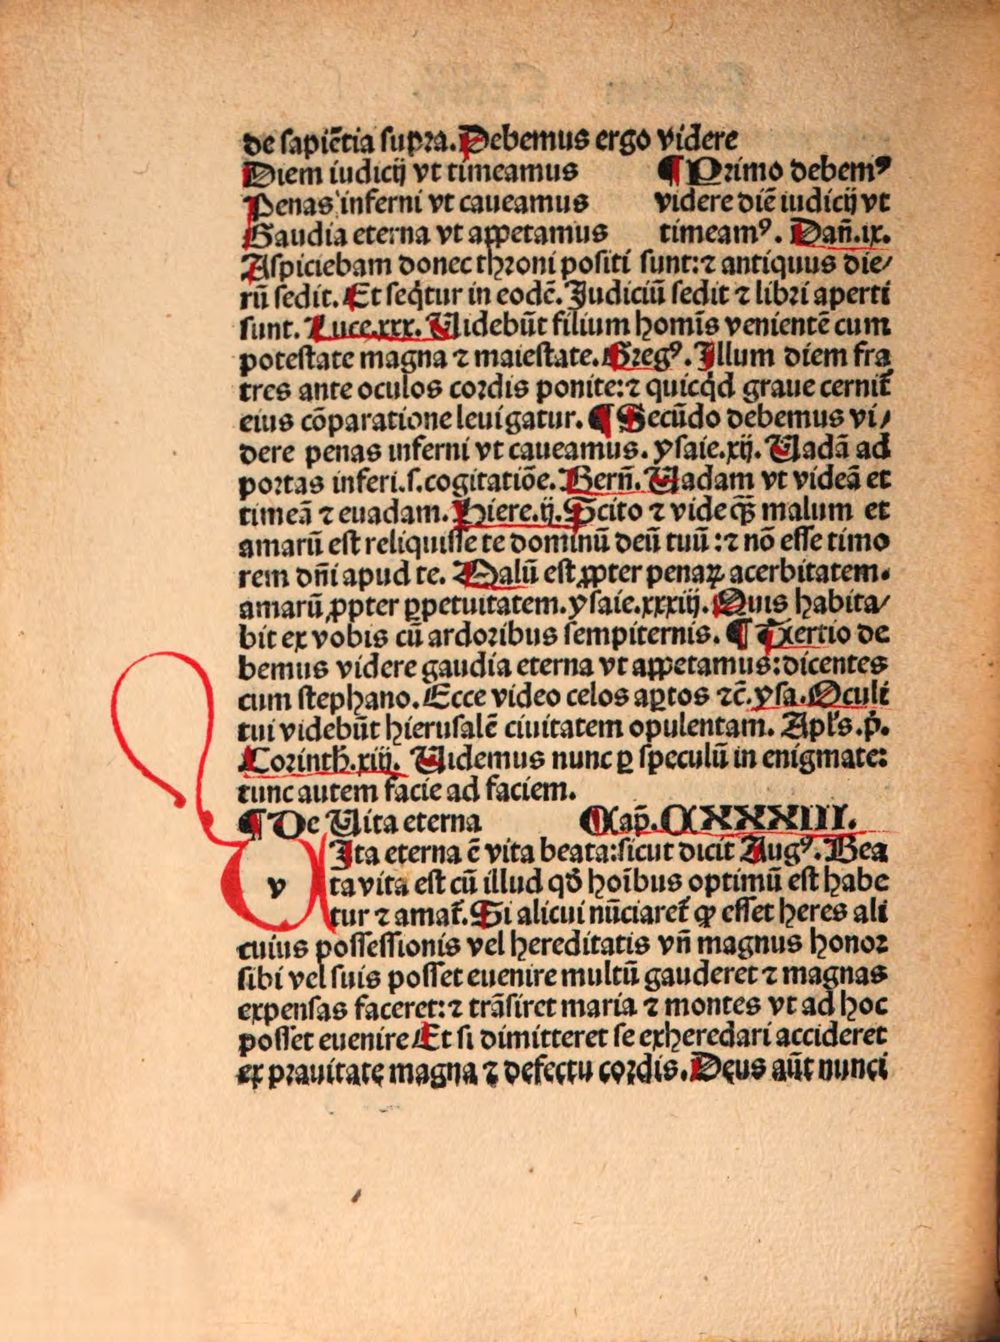 de sapiẽtia supra. Debemus ergo videre
Diem iudicij vt timeamus ¶ Primo debemꝰ
Penas inferni vt caueamus videre diẽ iudicij vt
Gaudia eterna vt appetamus timeamꝰ. Dañ.ix.
Aspiciebam donec throni positi sunt: ⁊ antiquus die/
rũ sedit. Et seq̃tur in eodẽ. Judiciũ sedit ⁊ libri aperti
sunt. Luce.xxx. Uidebũt filium homĩs venientẽ cum
potestate magna ⁊ maiestate. Gregꝰ. Illum diem fra
tres ante oculos cordis ponite: ⁊ quicq̃d graue cernit̃
eius cõparatione leuigatur. ¶ Secũdo debemus vi/
dere penas inferni vt caueamus. ysaie.xij. Uadã ad
portas inferi.s.cogitatiõe. Berñ. Uadam vt videã et
timeã ⁊ euadam. Hiere.ij. Scito ⁊ vide qꝫ̃ malum et
amarũ est reliquisse te dominũ deũ tuũ: ⁊ nõ esse timo
rem dñi apud te. Malũ est ꝓpter penaꝝ acerbitatem.
amarũ ꝓpter ꝑpetuitatem. ysaie.xxxiij. Quis habita/
bit ex vobis cũ ardoribus sempiternis. ¶ Tertio de
bemus videre gaudia eterna vt appetamus: dicentes
cum stephano. Ecce video celos aꝑtos ⁊c̃. ysa. Oculi
tui videbũt hierusalẽ ciuitatem opulentam. Apl̃s.p̃.
Corinth.xiij. Uidemus nunc ꝑ speculũ in enigmate:
tunc autem facie ad faciem.
¶ De Uita eterna Cap̃. CXXXIII.
v Ita eterna ẽ vita beata: sicut dicit Augꝰ. Bea
ta vita est cũ illud qd̃ hoĩbus optimũ est habe
tur ⁊ amat̃. Si alicui nũciaret̃ ꝙ esset heres ali
cuius possessionis vel hereditatis vñ magnus honor
sibi vel suis posset euenire multũ gauderet ⁊ magnas
expensas faceret: ⁊ trãsiret maria ⁊ montes vt ad hoc
posset euenire Et si dimitteret se exheredari accideret
ex prauitate magna ⁊ defectu cordis. Deus aũt nunci